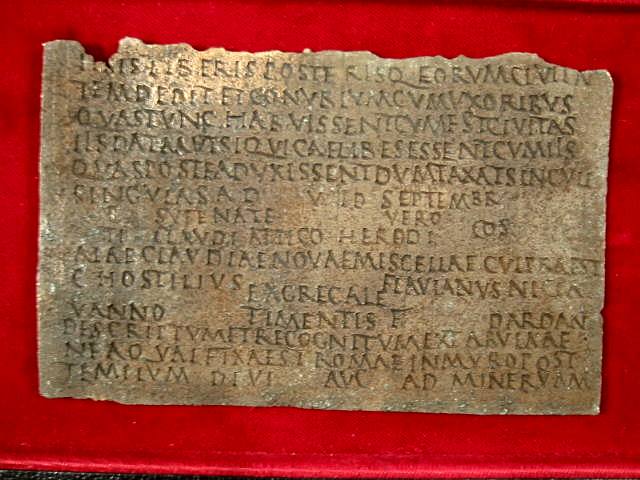 IPSIS LIBERIS POSTERISQ EORVM CIVITA
TEM DEDIT ET CONVBIVM CVM VXORIBVS
QVAS TVNC HABVISSENT CVM EST CIVITAS
IIS DATA AVT SI QVI CAELIBES ESSENT CVM IIS
QVAS POSTEA DVXISSENT DVMTAXAT SINGVLI
SINGVLAS A D V ID SEPTEMBR
VERO
TI CLAVDI ATTICO HERODE COS
ALAE CLAVDIAE NOVAE MISCELLAE CVI PRAEST
C HOSTILIVS FLAVIANVS
EX GREGALE
VANNO TIMENTIS F DARDAN
DESCRIPTVM ET RECOGNITVM EX TABVLA AE
NEA QVAE FIXA EST ROMAE IN MVRO POST
TEMPLVM DIVI AVG AD MINERVAM